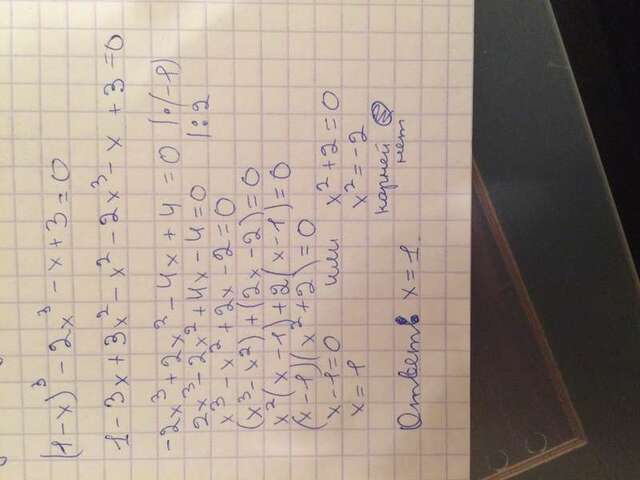 (1-x)³ - 2x³ - x + 3 = 0
1 - 3x + 3x² - x² - 2x³ - x + 3 = 0
-2x³ + 2x² - 4x + 4 = 0 |·(-1)
2x³ - 2x² + 4x - 4 = 0 |:2
x³ - x² + 2x - 2 = 0
(x³ - x²) + (2x - 2) = 0
x²(x - 1) + 2(x - 1) = 0
(x - 1)(x² + 2) = 0
x - 1 = 0 или x² + 2 = 0
x = 1 x² = -2
корней
нет
Ответ: x = 1.